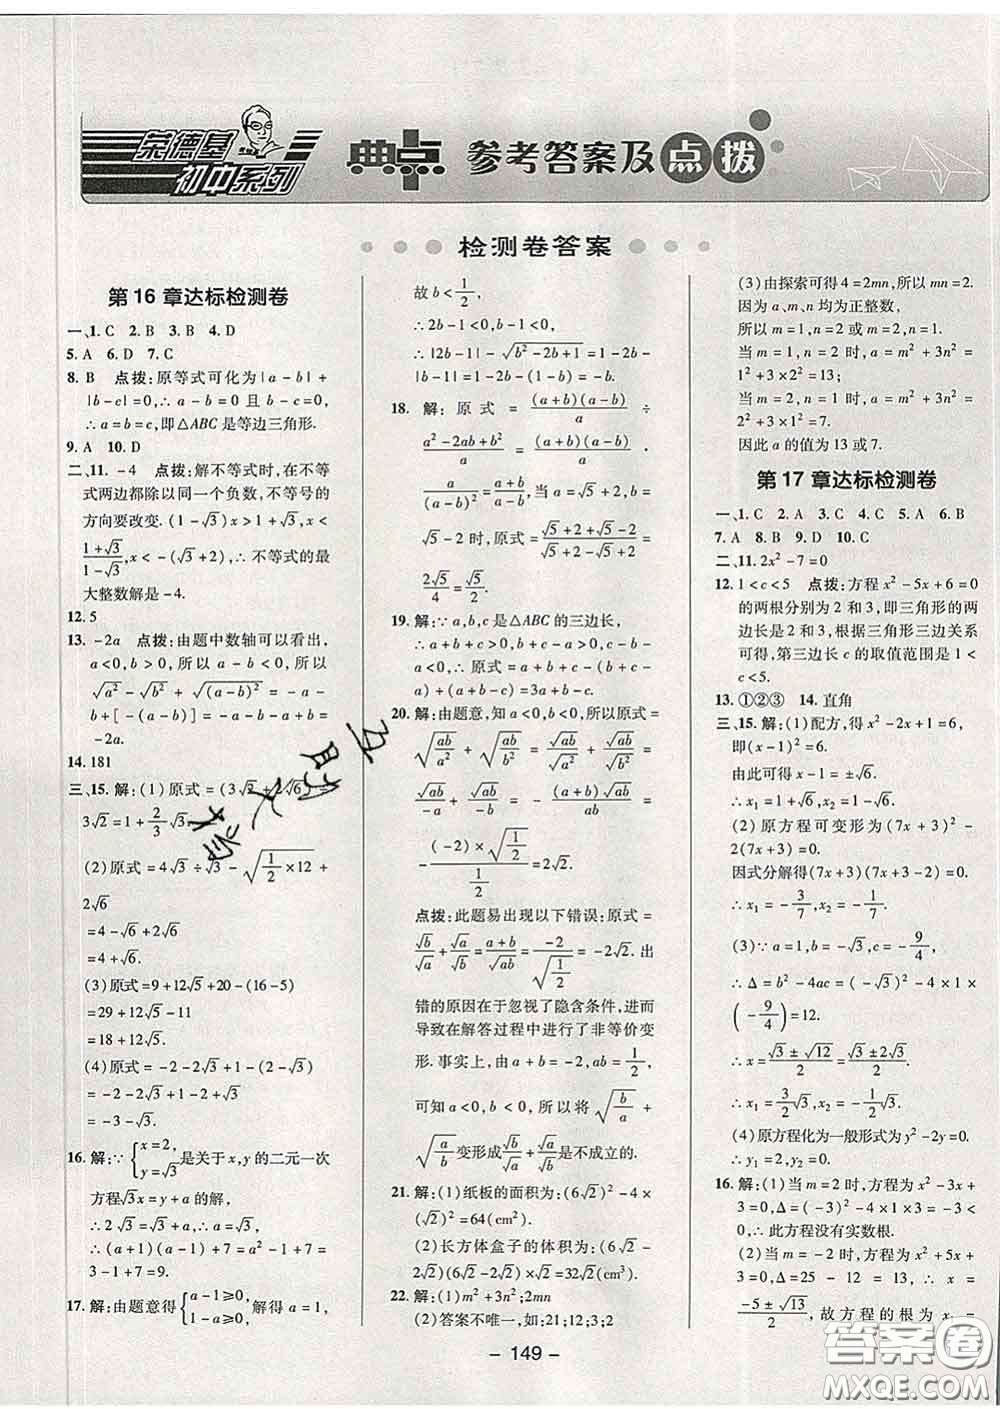 荣德基
初中系列
典点 参考答案及点拨
检测卷答案
第 16 章达标检测卷
一、1. C 2. B 3. B 4. D
5. A 6. D 7. C
8. B 点拨:原等式可化为|a-b|+
|b-c|=0,∴a-b=0 且 b-c=0,
∴a=b=c,即△ABC 是等边三角形.
9. A 10. D
二、11. -4 点拨:解不等式时,在不等
式两边都除以同一个负数,不等号的
方向要改变. (1-√3)x>1+√3, x<
(1+√3)/(1-√3), x<-(√3+2),∴不等式的最
大整数解是-4.
12. 5
13. -2a 点拨:由题中数轴可以看出,
a<0,b>0,所以 a-b<0,所以
√a²-√b²+√(a-b)²=-a-
b+[-(a-b)]=-a-b-a+b=
-2a.
14. 181
三、15. 解:(1)原式=(3√2+2√6)÷
3√2=1+(2/3)√3.
(2)原式=4√3÷√3-√(1/2×12)+
2√6
=4-√6+2√6
=4+√6.
(3)原式=9+12√5+20-(12-1)
=29+12√5-11
=18+12√5.
(4)原式=-2+1-(2-√3)-2√3
=-2-2√3+1-2+√3
=-3-√3.
16. 解:∵{x=2, y=√3是关于 x,y 的二元一次
方程√3x=y+a 的解,
∴2√3=√3+a,∴a=√3.
∴(a+1)(a-1)+7=a²-1+7=
3-1+7=9.
17. 解:由题意得{a-1≥0, 1-a≥0, 解得 a=1,
故 b<1/2,
∴2b-1<0,b-1<0,
∴|2b-1|-√(b²-2b+1)=1-2b-
|b-1|=1-2b-(1-b)=-b.
18. 解:原式=(a+b)(a-b)/a÷
(a²-2ab+b²)/a=(a+b)(a-b)/a·
a/(a-b)²=(a+b)/(a-b),当 a=√5+2,b=
√5-2 时,原式=(√5+2+√5-2)/(√5+2-√5+2)=
2√5/4=√5/2.
19. 解:∵a,b,c 是△ABC 的三边长,
∴a+b+c>0,b+c-a>0,c-b-
a<0,∴原式=a+b+c-(b+c-
a)+(a+b-c)=3a+b-c.
20. 解:由题意,知 a<0,b<0,所以原式=
√(ab/a²)+√(ab/b²)=√ab/√a²+√ab/√b²=
√ab/-a+√ab/-b=-(a+b)√ab/ab=
-(-2)×√(1/2)/(1/2)=2√2.
点拨:此题易出现以下错误:原式=
√b/√a+√a/√b=(a+b)/√ab=-2/√(1/2)=-2√2. 出
错的原因在于忽视了隐含条件,进而
导致在解答过程中进行了非等价变
形.事实上,由 a+b=-2,ab=1/2,
可知 a<0,b<0,所以将√(b/a)+
√(a/b)变形成√b/√a+√a/√b不成立.
21. 解:(1)纸板的面积为:(6√2)²-4×
(√2)²=64(cm²).
(2)长方体盒子的体积为:(6√2-
2√2)(6√2-2√2)×√2=32√2(cm³).
22. 解:(1)m²+3n²;2mn
(2)答案不唯一,如:21;12;3;2
(3)由探索可得 4=2mn,mn=2.
因为 a、m、n 均为正整数,
所以 m=1,n=2 或 m=2,n=1.
当 m=1,n=2 时,a=m²+3n²=
1²+3×2²=13;
当 m=2,n=1 时,a=m²+3n²=
2²+3×1²=7.
因此 a 的值为 13 或 7.
第 17 章达标检测卷
一、1. C 2. A 3. C 4. C 5. A 6. B
7. A 8. B 9. D 10. D
二、11. 2x²-7=0
12. 1<c<5 点拨:方程 x²-5x+6=0
的两根分别为 2 和 3,即三角形的两
边长是 2 和 3,根据三角形三边关系
可得,第三边长 c 的取值范围是 1<
c<5.
13. ①②③ 14. 直角
三、15. 解:(1)配方,得 x²-2x+1=6,
即(x-1)²=6.
由此可得 x-1=±√6.
∴x₁=1+√6,x₂=1-√6.
(2)原方程可变形为(7x+3)²-
2(7x+3)=0.
因式分解得(7x+3)(7x+3-2)=0.
∴x₁=-3/7,x₂=-1/7.
(3)∵a=1,b=-√3,c=-9/4,
∴Δ=b²-4ac=(-√3)²-4×1×
(-9/4)=12.
∴x=(√3±√12)/2=(√3±2√3)/2.
∴x₁=(3/2)√3,x₂=-√3/2.
(4)原方程化为一般形式为 y²-2y=0.
∴y₁=2,y₂=0.
16. 解:(1)当 m=2 时,方程为 x²-3x+
3=0,Δ=(-3)²-4×1×3=-3<
0,∴此方程没有实数根.
(2)当 m=-2 时,方程为 x²+5x+
3=0,Δ=25-12=13,∴x=
(-5±√13)/2,故方程的根为 x₁=
- 149 -
答案圈
MXQE.COM